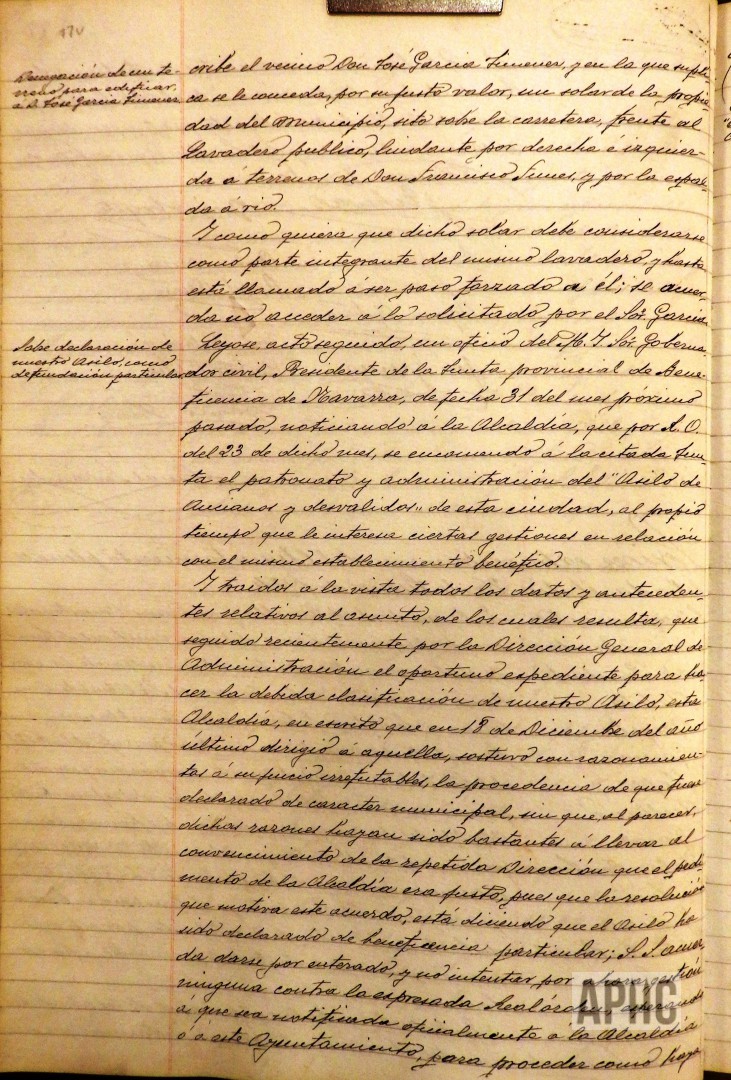 170
Denegación de un te-
rreno para edificar,
á D. José García Jimenez
cribe el vecino Don José García Jimenez, y en la que supli-
ca se le conceda, por su justo valor, un solar de la propie-
dad del Municipio, sito sobre la carretera, frente al
Lavadero publico, lindante por derecha é izquier-
da á terrenos de Don Francisco Funes, y por la espal-
da á rio.
Y como quiera que dicho solar debe considerarse
como parte integrante del mismo lavadero, y hasta
está llamado á ser paso forzado a él; se acuer-
da no acceder á lo solicitado por el Sor. García.
Sobre declaración de
nuestro Asilo, como
de fundación particular
Leyose acto seguido, un oficio del M. I. Sor. Goberna-
dor civil, Presidente de la Junta provincial de Bene-
ficencia de Navarra, de fecha 31 del mes próximo
pasado, noticiando á la Alcaldía, que por R. O.
del 23 de dicho mes, se encomendó á la citada Jun-
ta el patronato y administración del "Asilo de
Ancianos y desvalidos" de esta ciudad, al propio
tiempo que le interesa ciertas gestiones en relación
con el mismo establecimiento benéfico.
Y traidos á la vista todos los datos y anteceden-
tes relativos al asunto, de los cuales resulta, que
seguido recientemente por la Dirección General de
Administración el oportuno expediente para ha-
cer la debida clasificación de nuestro Asilo, esta
Alcaldía, en escrito que en 18 de Diciembre del año
último dirigió á aquella, sostuvo con razonamien-
tos á su juicio irrefutables, la procedencia de que fuera
declarado de caracter municipal, sin que, al parecer,
dichas razones hayan sido bastantes á llevar al
convencimiento de la repetida Dirección que el pedi-
mento de la Alcaldía era justo, pues que la resolución
que motiva este acuerdo, está diciendo que el Asilo ha
sido declarado de beneficencia particular; S. S. acuer-
da darse por enterado, y no intentar, por ahora gestión
ninguna contra la expresada Real órden, esperando
á que sea notificada oficialmente a la Alcaldía
ó a este Ayuntamiento, para proceder como haya
APNC